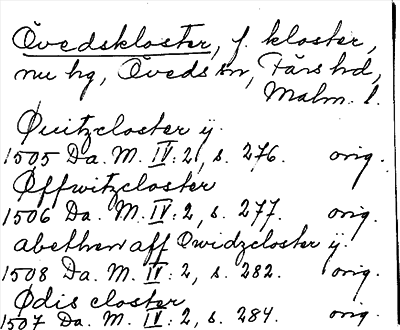 Övedskloster, f. kloster,
nu hg, Öveds sn, Färs hd,
Malm. l.
Øuitzcloster ÿ.
1505 Da. M. IV: 2, s. 276. orig.
Øffwitzcloster
1506 Da. M. IV: 2, s. 277. orig.
abethen aff Øwidzcloster ÿ.
1508 Da. M. IV: 2, s. 282. orig.
Ødis closter
1507 Da. M. IV: 2, s. 284. orig.